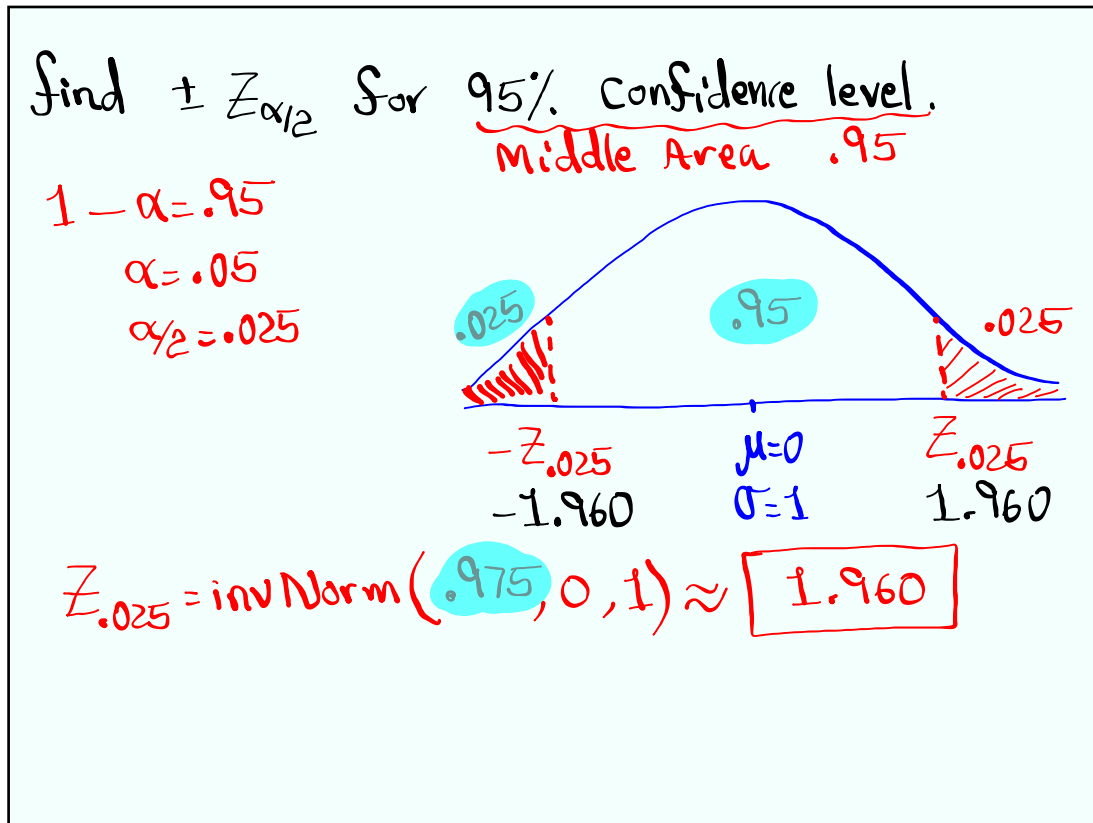 find ± Z α/2 for 95% Confidence level.
Middle Area .95
1 - α = .95
α = .05
α/2 = .025
.025 .95 .025
-Z .025 μ=0 Z .025
-1.960 σ=1 1.960
Z .025 = invNorm(.975, 0, 1) ≈ 1.960